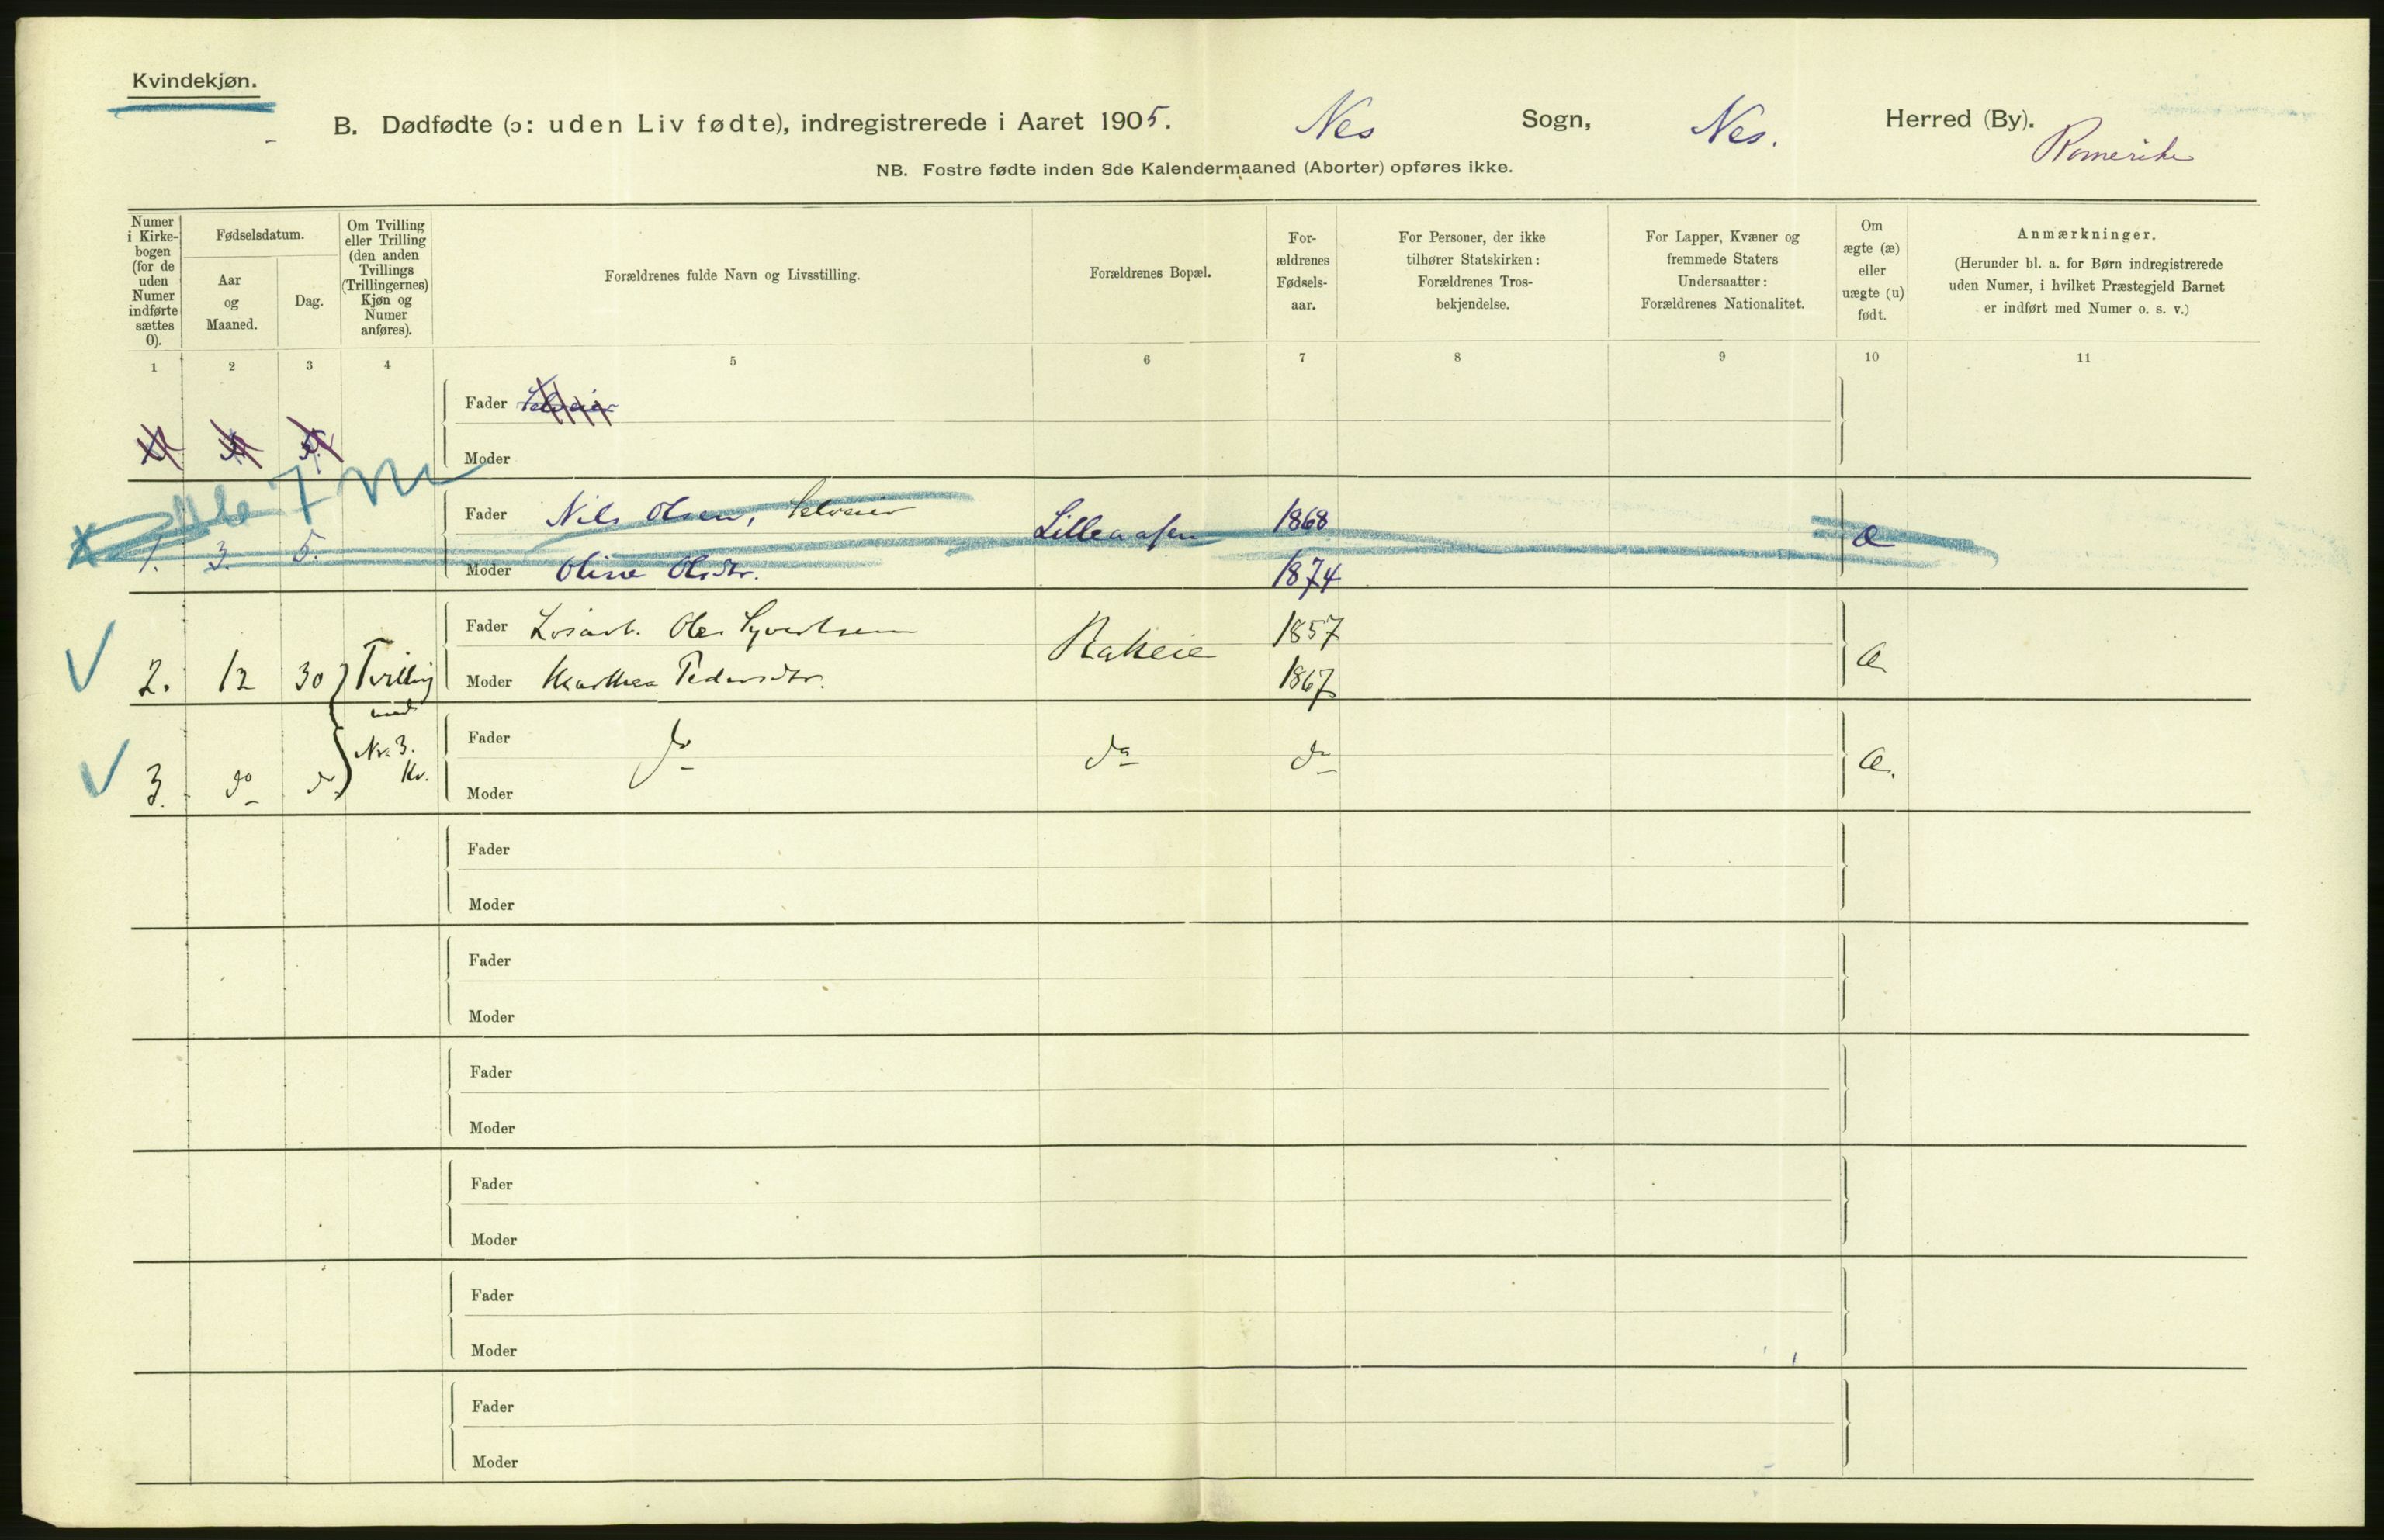 Kvindekjøn.
B. Dødfødte (ɔ: uden Liv fødte), indregistrerede i Aaret 1905. Nes Sogn, Nes. Herred (By).
Romerike
NB. Fostre fødte inden 8de Kalendermaaned (Aborter) opføres ikke.
Numer i Kirke-bogen (for de uden Numer indførte sættes 0).
Fødselsdatum.
Aar og Maaned.
Dag.
Om Tvilling eller Trilling (den anden Tvillings (Trillingernes) Kjøn og Numer anføres).
Forældrenes fulde Navn og Livsstilling.
Forældrenes Bopæl.
For-ældrenes Fødsels-aar.
For Personer, der ikke tilhører Statskirken: Forældrenes Tros-bekjendelse.
For Lapper, Kvæner og fremmede Staters Undersaatter: Forældrenes Nationalitet.
Om ægte (æ) eller uægte (u) født.
Anmærkninger.
(Herunder bl. a. for Børn indregistrerede uden Numer, i hvilket Præstegjeld Barnet er indført med Numer o. s. v.)
1 2 3 4 5 6 7 8 9 10 11
Fader Selveier
Moder
Fader Nils Olsen, Selveier Lilleaasen 1868 æ
1. 3. 5. Moder Oline Olsdtr. 1874
Fader Løsarb. Ole Syvertsen Rakeie 1857 æ
2. 12 30 Tvilling Moder Marthea Pedersdtr. 1867
med
Nr. 3. Kv.
Fader do do do æ.
3. do do Moder
Fader
Moder
Fader
Moder
Fader
Moder
Fader
Moder
Fader
Moder
Fader
Moder